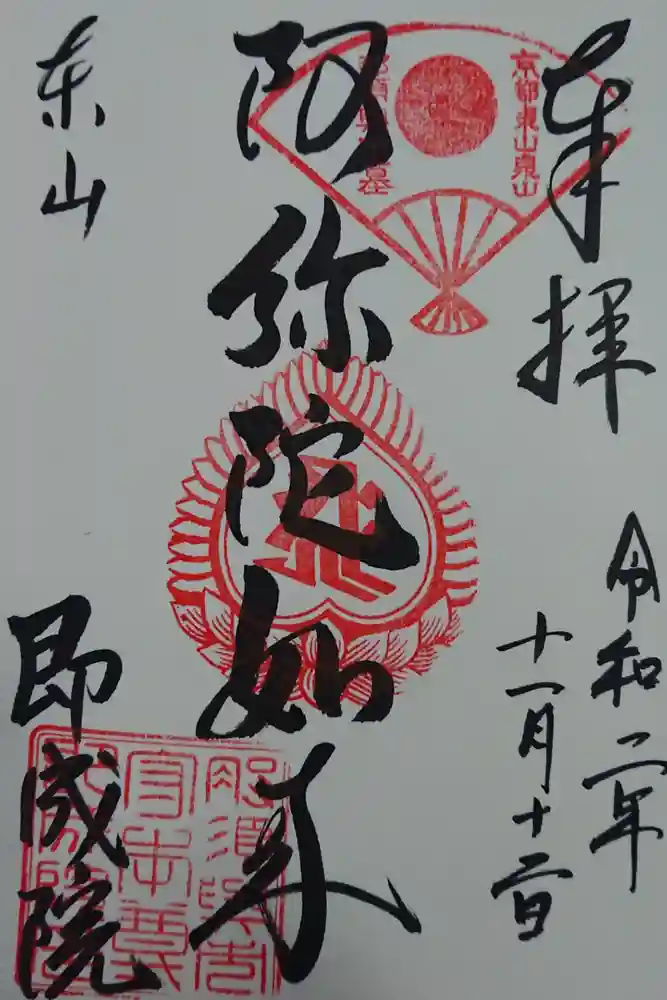 奉拝
令和二年
十一月十二日
京都東山泉山
阿弥陀如来
东山
即成院